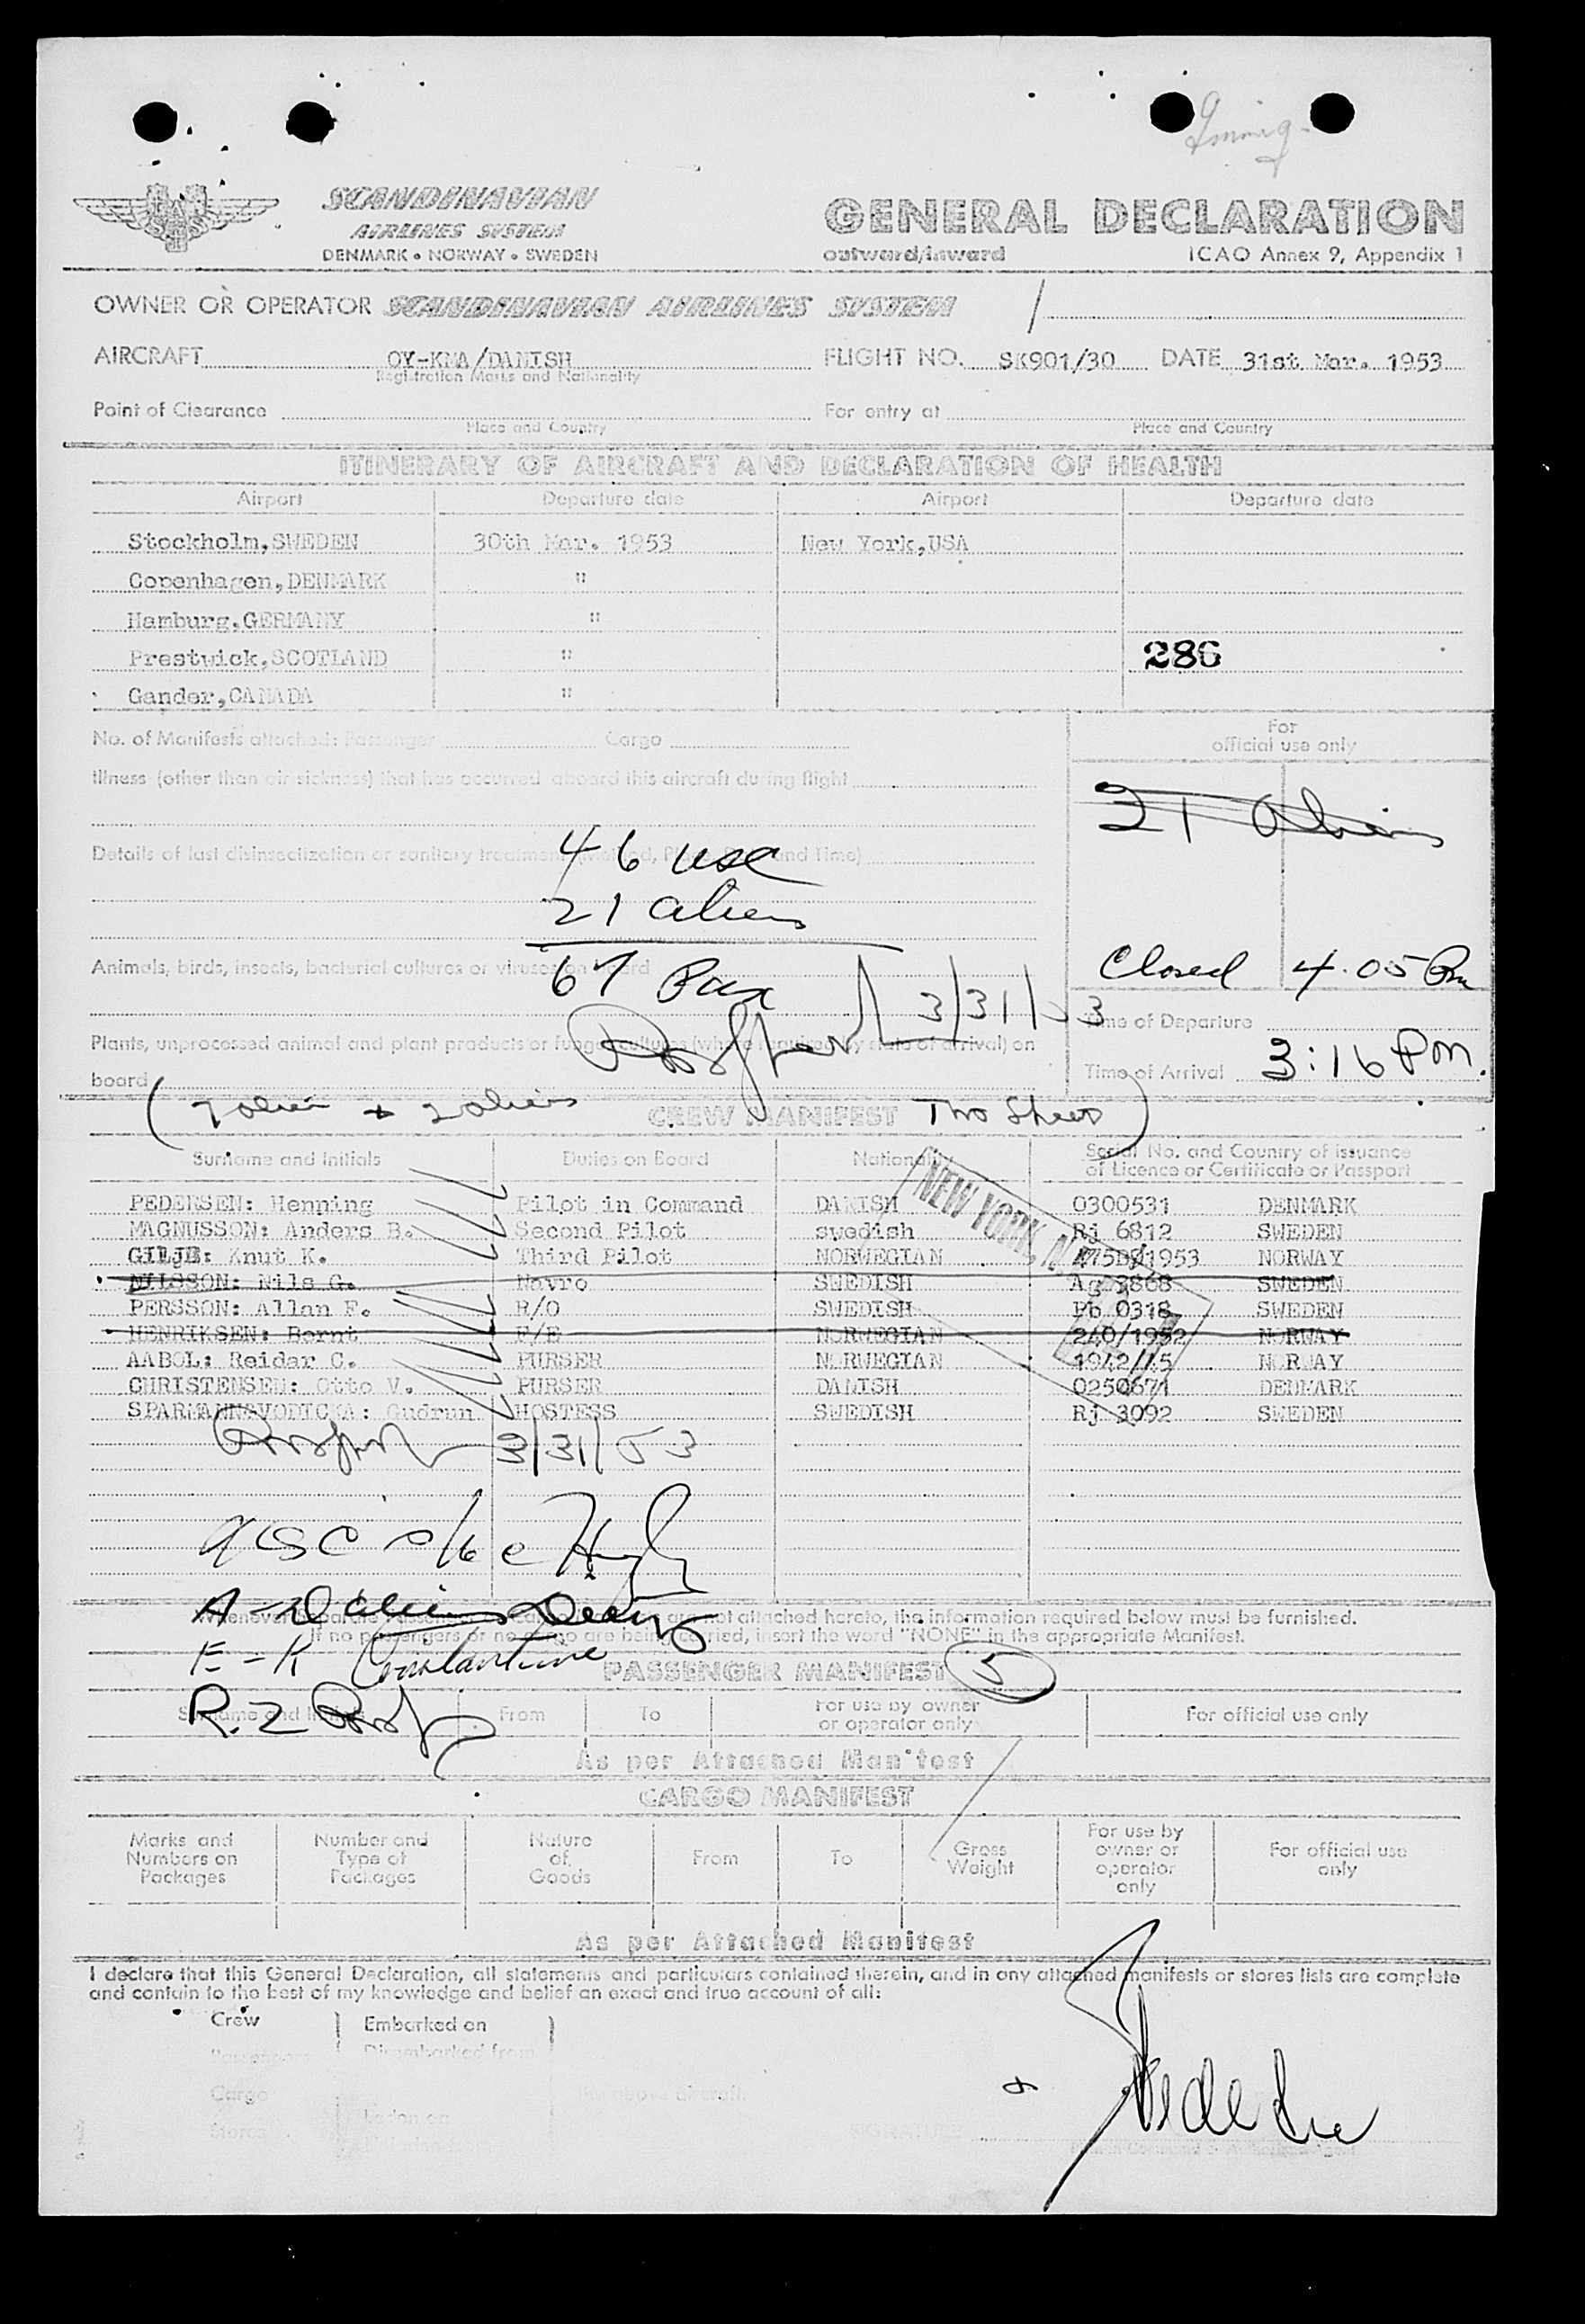 Immig.
SCANDINAVIAN
AIRLINES SYSTEM
DENMARK • NORWAY • SWEDEN
GENERAL DECLARATION
outward/inward ICAO Annex 9, Appendix 1
OWNER OR OPERATOR SCANDINAVIAN AIRLINES SYSTEM
AIRCRAFT OY-KMA/DANISH FLIGHT NO. SK901/30 DATE 31st Mar. 1953
Registration Marks and Nationality
Point of Clearance For entry at
Place and Country Place and Country
ITINERARY OF AIRCRAFT AND DECLARATION OF HEALTH
Airport Departure date Airport Departure date
Stockholm,SWEDEN 30th Mar. 1953 New York,USA
Copenhagen,DENMARK "
Hamburg,GERMANY "
Prestwick,SCOTLAND " 286
Gander,CANADA "
No. of Manifests attached: Passenger Cargo
For
official use only
Illness (other than air sickness) that has occurred aboard this aircraft during flight
21 Aliens
Details of last disinsectization or sanitary treatment (Method, Place, Date and Time)
46 USC
21 aliens
67 Pax
Animals, birds, insects, bacterial cultures or viruses on board
Closed 4.05 Pm
3/31/53
Time of Departure
Plants, unprocessed animal and plant products or fungal cultures (where required by state of arrival) on
board
Time of Arrival 3:16 Pm.
CREW MANIFEST
Two Sheets)
Surname and Initials Duties on Board Nationality Serial No. and Country of issuance
of Licence or Certificate or Passport
NEW YORK, N.
PEDERSEN: Henning Pilot in Command DANISH 0300531 DENMARK
MAGNUSSON: Anders B. Second Pilot swedish Rj 6812 SWEDEN
GILJE: Knut K. Third Pilot NORWEGIAN 1953 NORWAY
NILSSON: Nils G. Navro SWEDISH Ag 3868 SWEDEN
PERSSON: Allan F. R/O SWEDISH Pb 0318 SWEDEN
HENRIKSEN: Bernt F/E NORWEGIAN 240/1952 NORWAY
AABOL: Reidar C. PURSER NORWEGIAN 1942/45 NORWAY
CHRISTENSEN: Otto V. PURSER DANISH 0250671 DENMARK
SPARMANNSVODICKA: Gudrun HOSTESS SWEDISH Rj 3092 SWEDEN
3/31/53
Whenever not attached hereto, the information required below must be furnished.
If no passengers or no cargo are being carried, insert the word "NONE" in the appropriate Manifest.
E - K Constantine
PASSENGER MANIFEST 5
R.Z
Surname and Initials From To For use by owner
or operator only For official use only
As per Attached Manifest
CARGO MANIFEST
Marks and
Numbers on
Packages Number and
Type of
Packages Nature
of
Goods From To Gross
Weight For use by
owner or
operator
only For official use
only
As per Attached Manifest
I declare that this General Declaration, all statements and particulars contained therein, and in any attached manifests or stores lists are complete
and contain to the best of my knowledge and belief an exact and true account of all:
Crew Embarked on
Passengers Disembarked from
Cargo the above aircraft
Stores
SIGNATURE